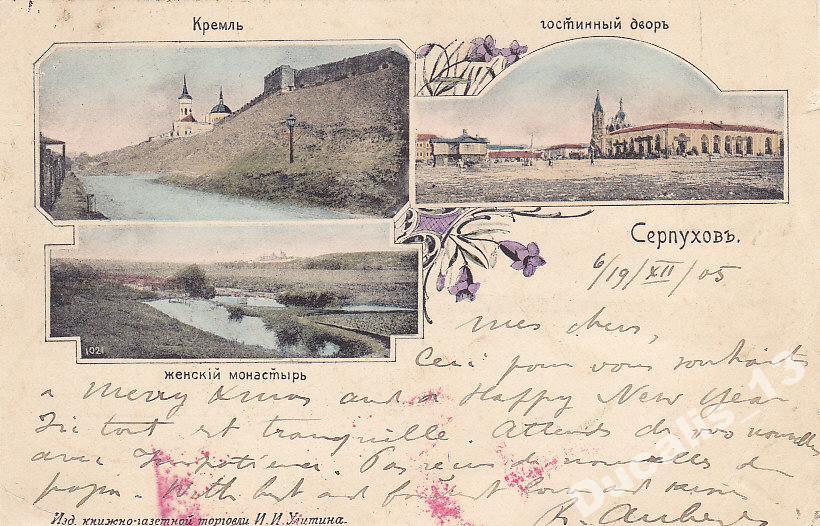 Кремль
гостинный дворъ
Серпуховъ.
6/19/XII/05
1021
женскій монастырь
mes chers,
Ceci pour vous souhaiter
a Merry Xmas and a Happy New Year
Ici tout est tranquille. Attends de vos nouvelles
avec Impatience. Pas reçu de nouvelles de
papa. With best and fondest love and
Изд. книжно-газетной торговли И. И. Улитина.
Ducalis_13